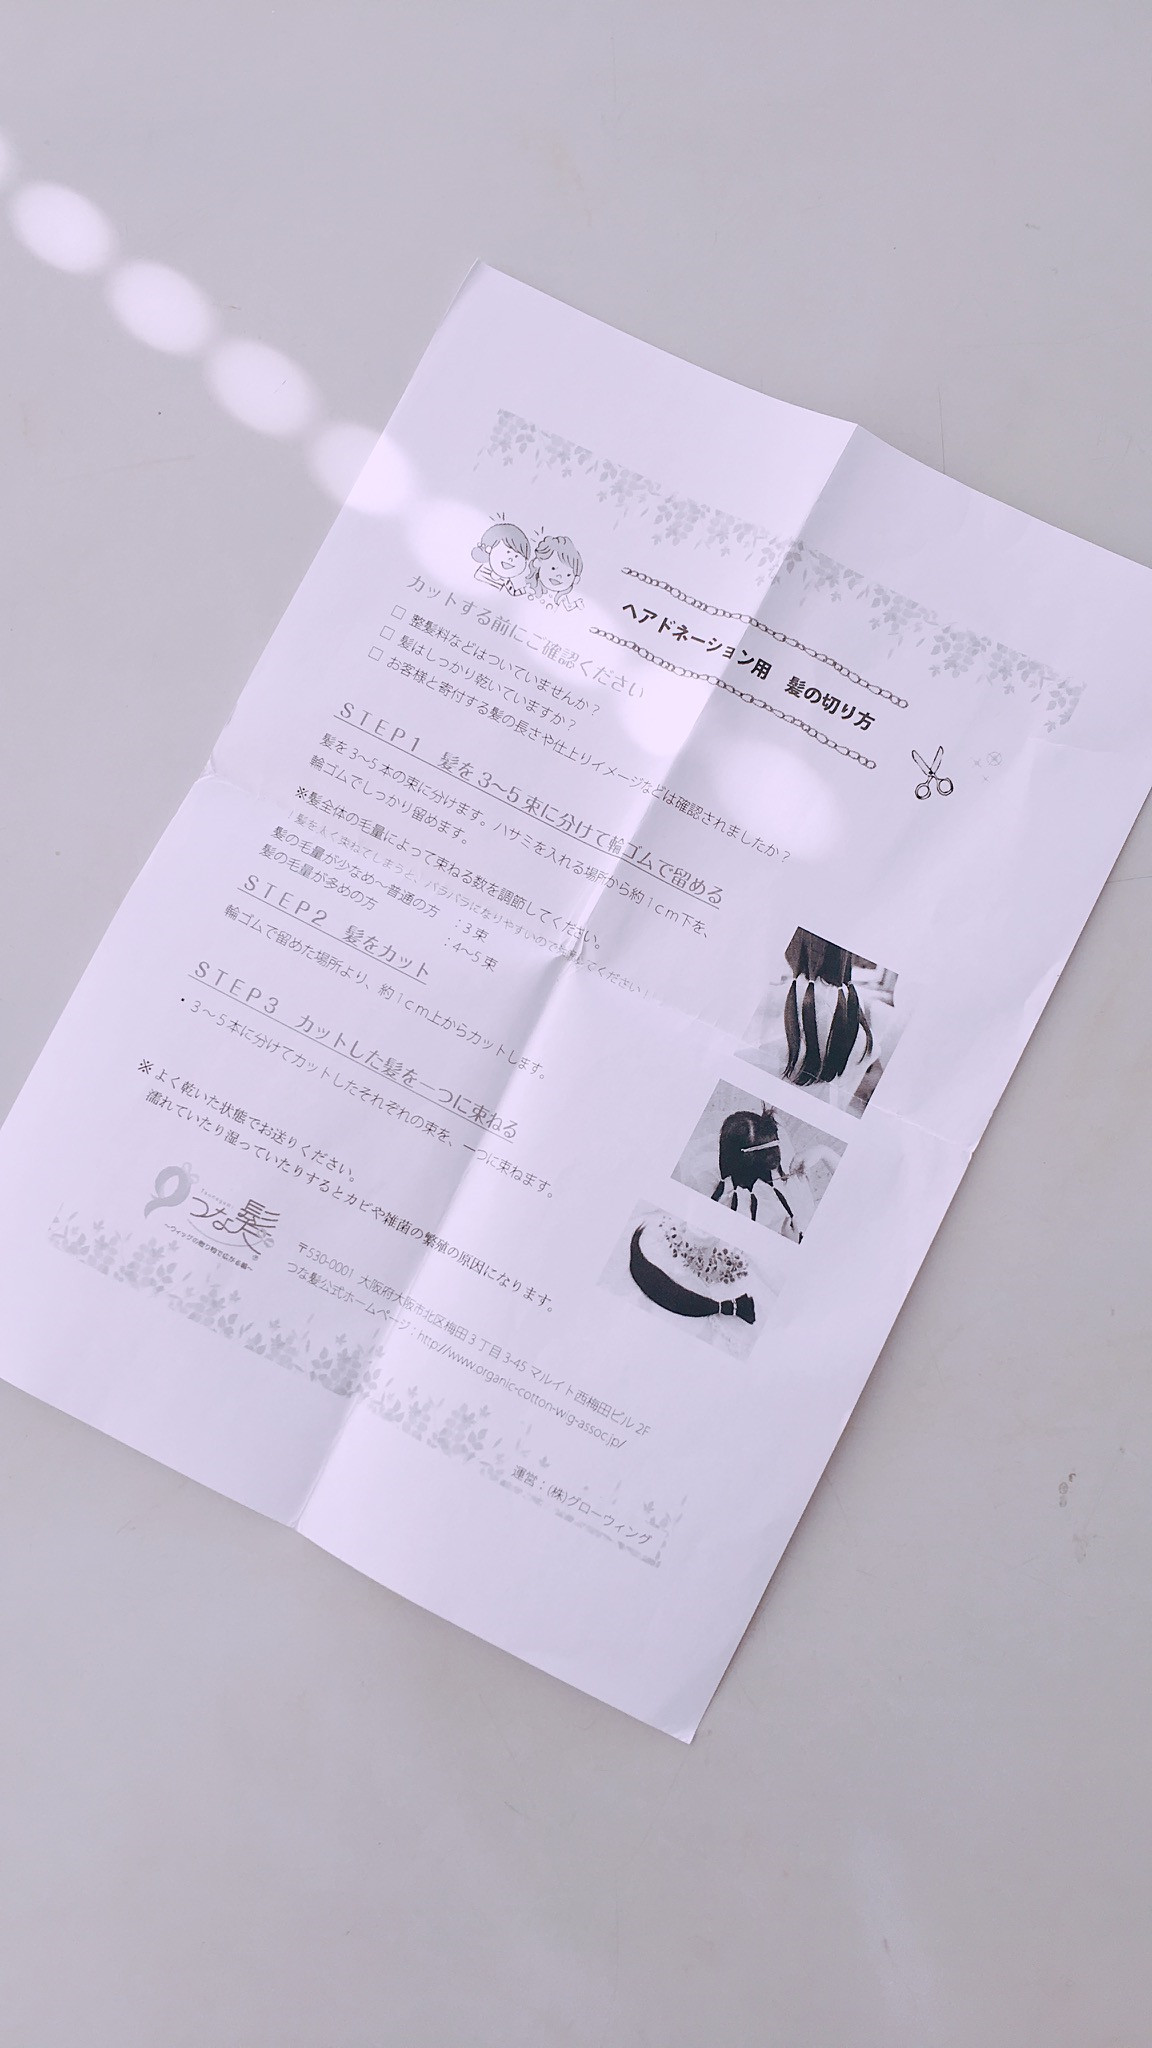 ヘアドネーション用　髪の切り方
カットする前にご確認ください
□ 整髪料などはついていませんか？
□ 髪はしっかり乾いていますか？
□ お客様と寄付する髪の長さや仕上りイメージなどは確認されましたか？
STEP1　髪を3～5束に分けて輪ゴムで留める
髪を3～5本の束に分けます。ハサミを入れる場所から約1cm下を、
輪ゴムでしっかり留めます。
※髪全体の毛量によって束ねる数を調節してください。
！髪を太く束ねてしまうと、バラバラになりやすいので
髪の毛量が少なめ～普通の方　：3束
髪の毛量が多めの方　：4～5束
STEP2　髪をカット
輪ゴムで留めた場所より、約1cm上からカットします。
STEP3　カットした髪を一つに束ねる
・3～5本に分けてカットしたそれぞれの束を、一つに束ねます。
※よく乾いた状態でお送りください。
濡れていたり湿っていたりするとカビや雑菌の繁殖の原因になります。
つな髪
～ウィッグの贈り物で広がる輪～
〒530-0001 大阪府大阪市北区梅田3丁目3-45 マルイト西梅田ビル2F
つな髪公式ホームページ：http//www.organic-cotton-wig-assoc.jp/
運営：(株)グローウィング